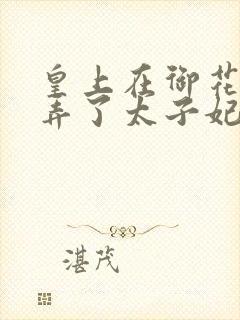 皇上在御花
弄了太子妃
湛茂